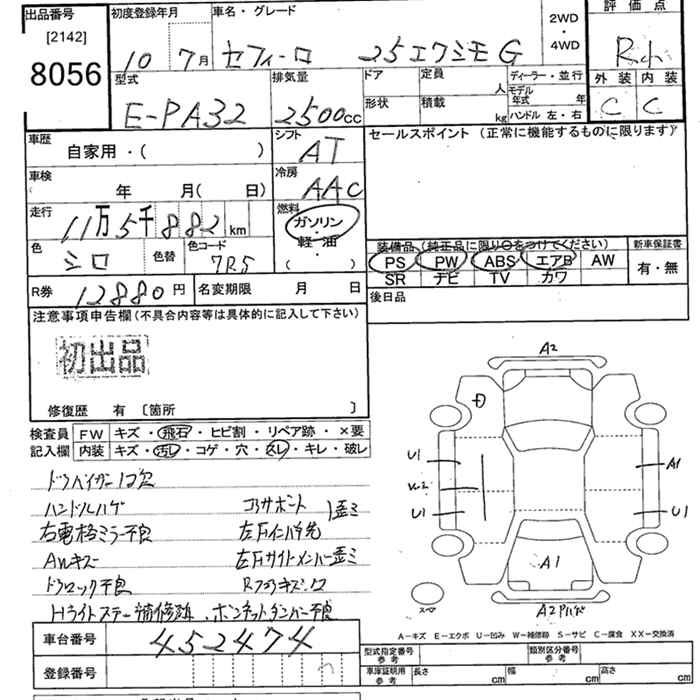 出品番号 初度登録年月 車名・グレード 2WD・4WD 評価点
[2142]
8056
10 7月 セフィーロ 25エクシモG
型式 排気量 ドア 定員 人 ディーラー・並行 外装 内装
E-PA32 2500cc 形状 積載 kg モデル年式 年 ハンドル 左・右 C C
車歴 自家用・( ) シフト AT セールスポイント (正常に機能するものに限ります)
車検 年 月( 日) 冷房 AAC
走行 11万5千882km 燃料 ガソリン・軽・油 ( )
色 シロ 色替 色コード 7R5
装備品 (純正品に限り○をつけてください) 新車保証書
PS PW ABS エアB AW 有・無
SR ナビ TV カワ
R券 12880円 名変期限 月 日 後日品
注意事項申告欄 (不具合内容等は具体的に記入して下さい)
初出品
修復歴 有 〔箇所 〕
検査員 FW キズ・飛石・ヒビ割・リペア跡・×要
記入欄 内装 キズ・汚レ・コゲ・穴・スレ・キレ・破レ
ハンドルハゲ コアサポート 歪ミ
右電格ミラー不良
AWキズ
ドアロック不良
Hライトステー補修跡、ボンネットダンパー不良
車台番号 452474
登録番号
A2
U1
U1
A1
U1
A1
スペ
A2
A−キズ E−エクボ U−凹み W−補修跡 S−サビ C−腐食 XX−交換済
型式指定番号 参考 類別区分番号 参考
車庫証明用 参考 長さ cm 幅 cm 高さ cm